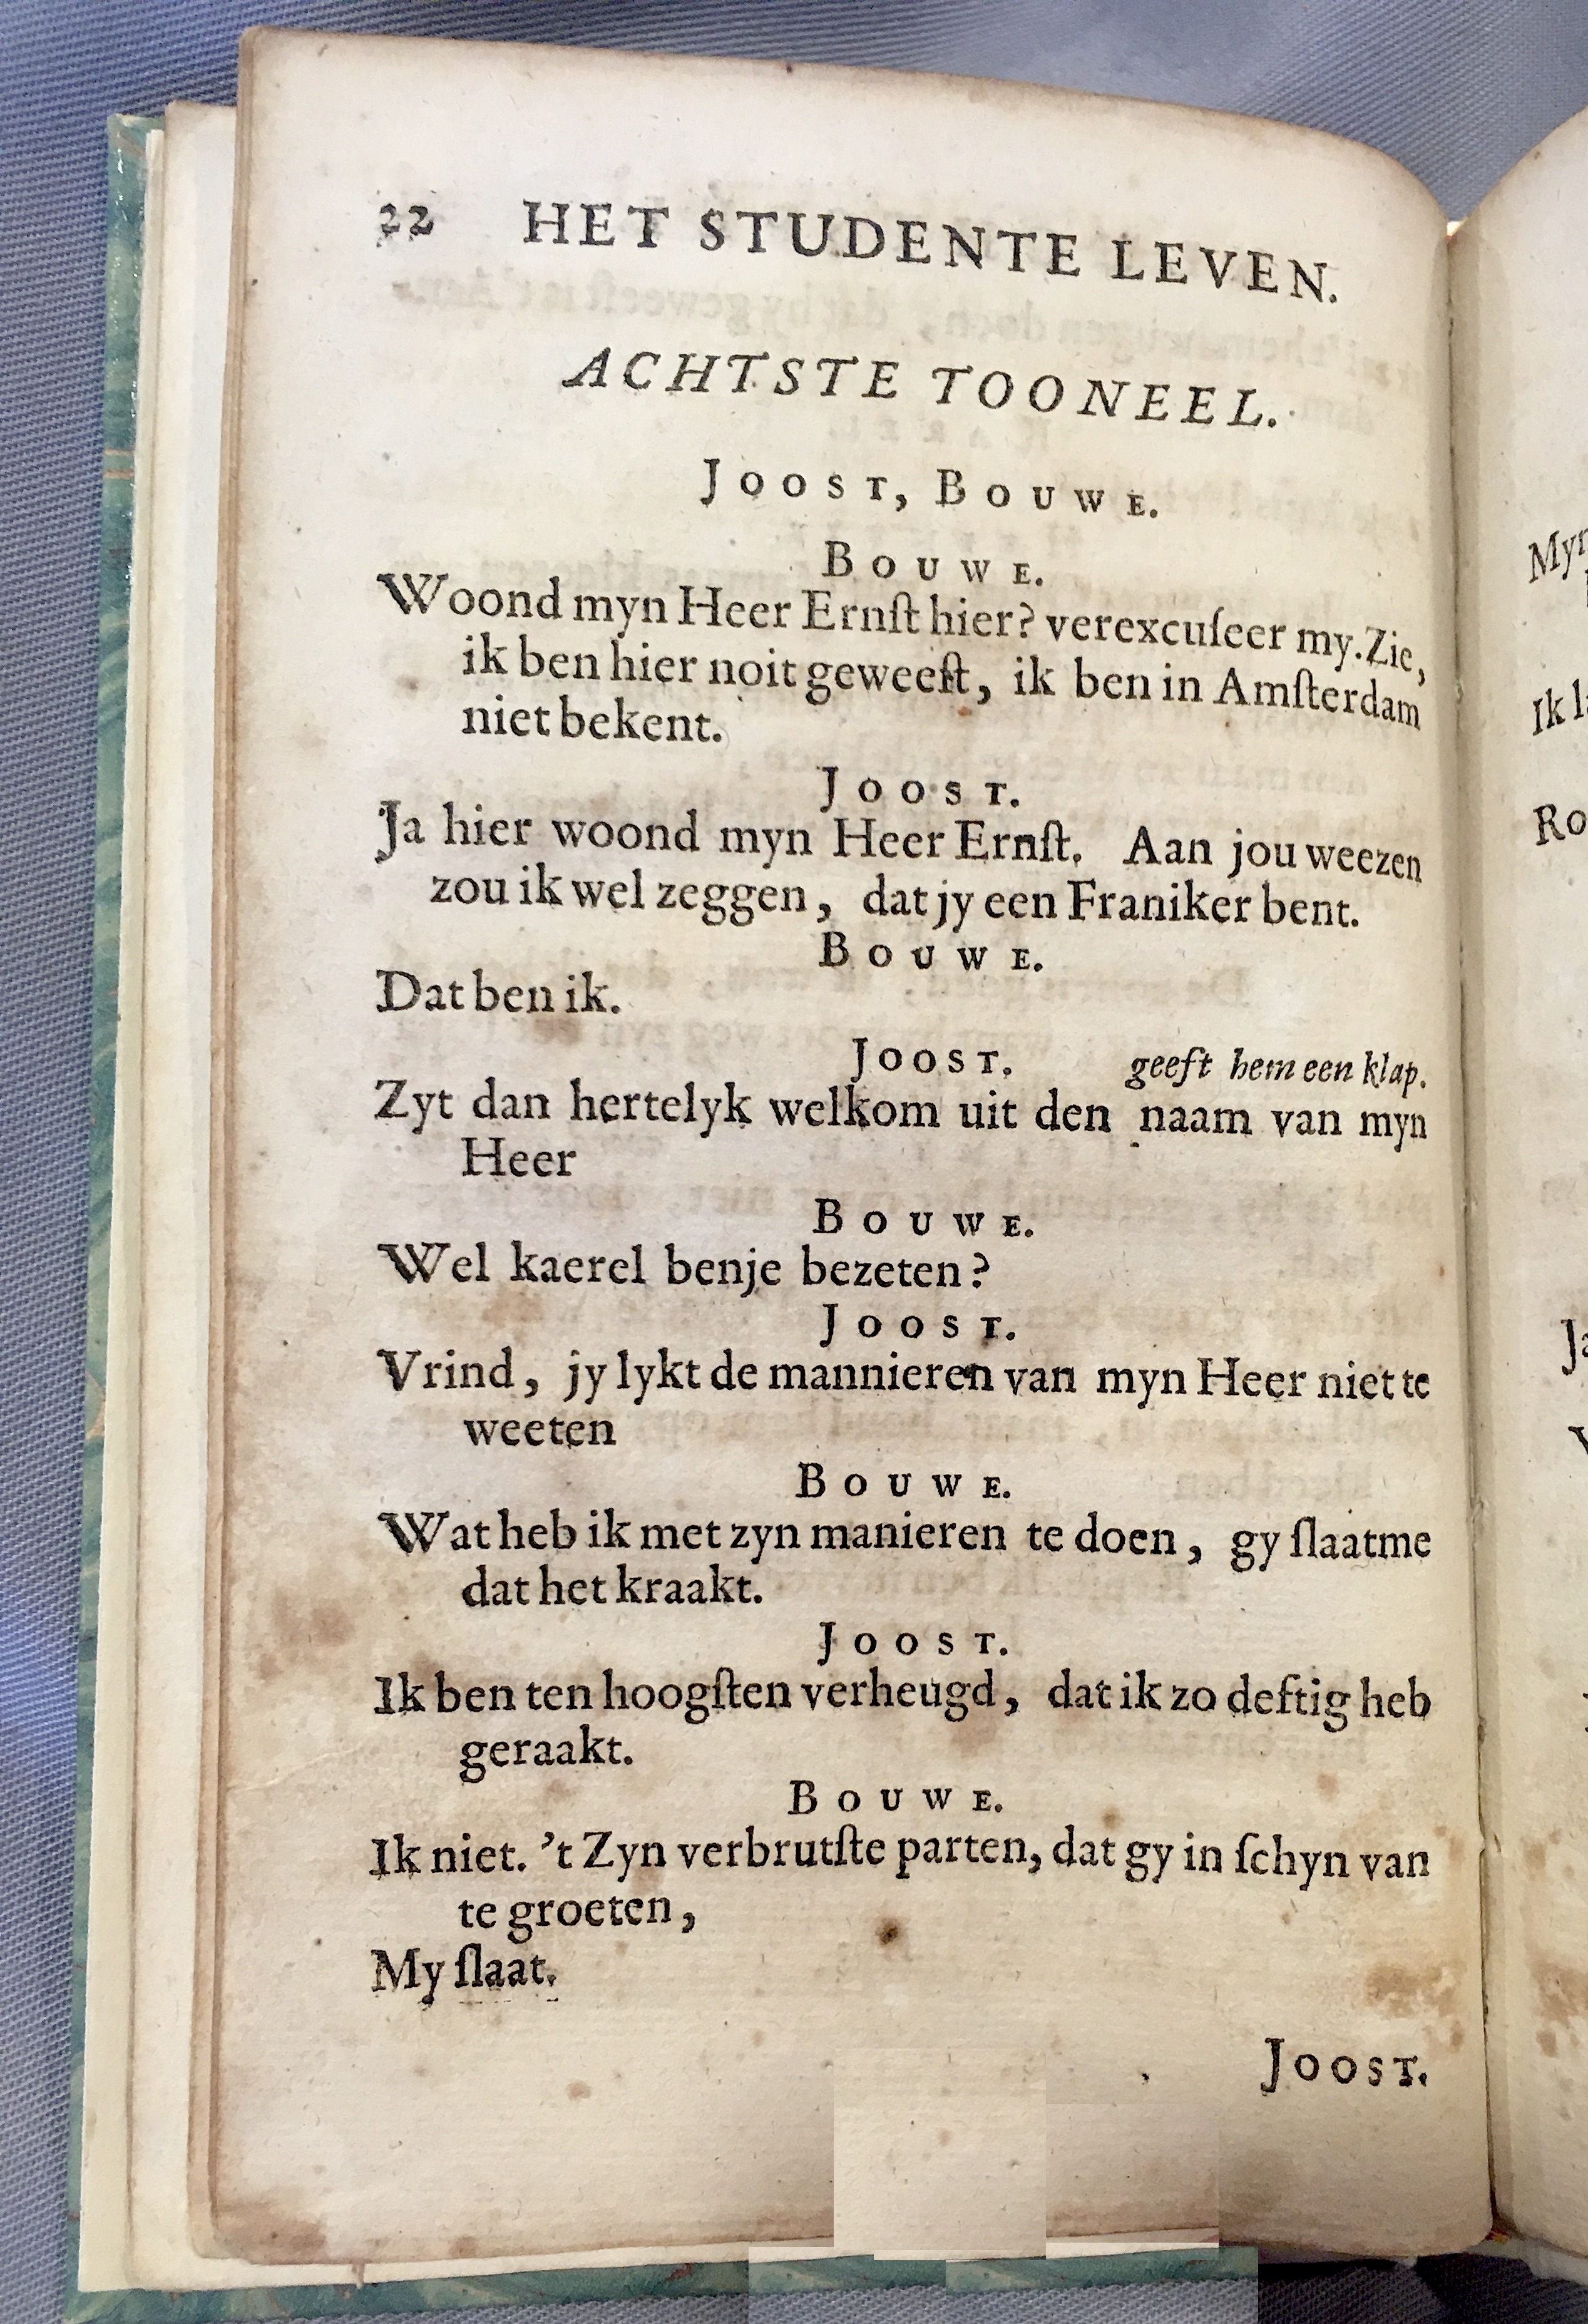 22 HET STUDENTE LEVEN.
ACHTSTE TOONEEL.
JOOST, BOUWE.
BOUWE.
Woond myn Heer Ernſt hier? verexcuſeer my. Zie,
ik ben hier noit geweeſt, ik ben in Amſterdam
niet bekent.
JOOST.
Ja hier woond myn Heer Ernſt. Aan jou weezen
zou ik wel zeggen, dat jy een Franiker bent.
BOUWE.
Dat ben ik.
JOOST. geeft hem een klap.
Zyt dan hertelyk welkom uit den naam van myn
Heer
BOUWE.
Wel kaerel benje bezeten?
JOOST.
Vrind, jy lykt de mannieren van myn Heer niet te
weeten
BOUWE.
Wat heb ik met zyn manieren te doen, gy ſlaatme
dat het kraakt.
JOOST.
Ik ben ten hoogſten verheugd, dat ik zo deftig heb
geraakt.
BOUWE.
Ik niet. 't Zyn verbrutſte parten, dat gy in ſchyn van
te groeten,
My ſlaat.
JOOST.
Ik
Ro